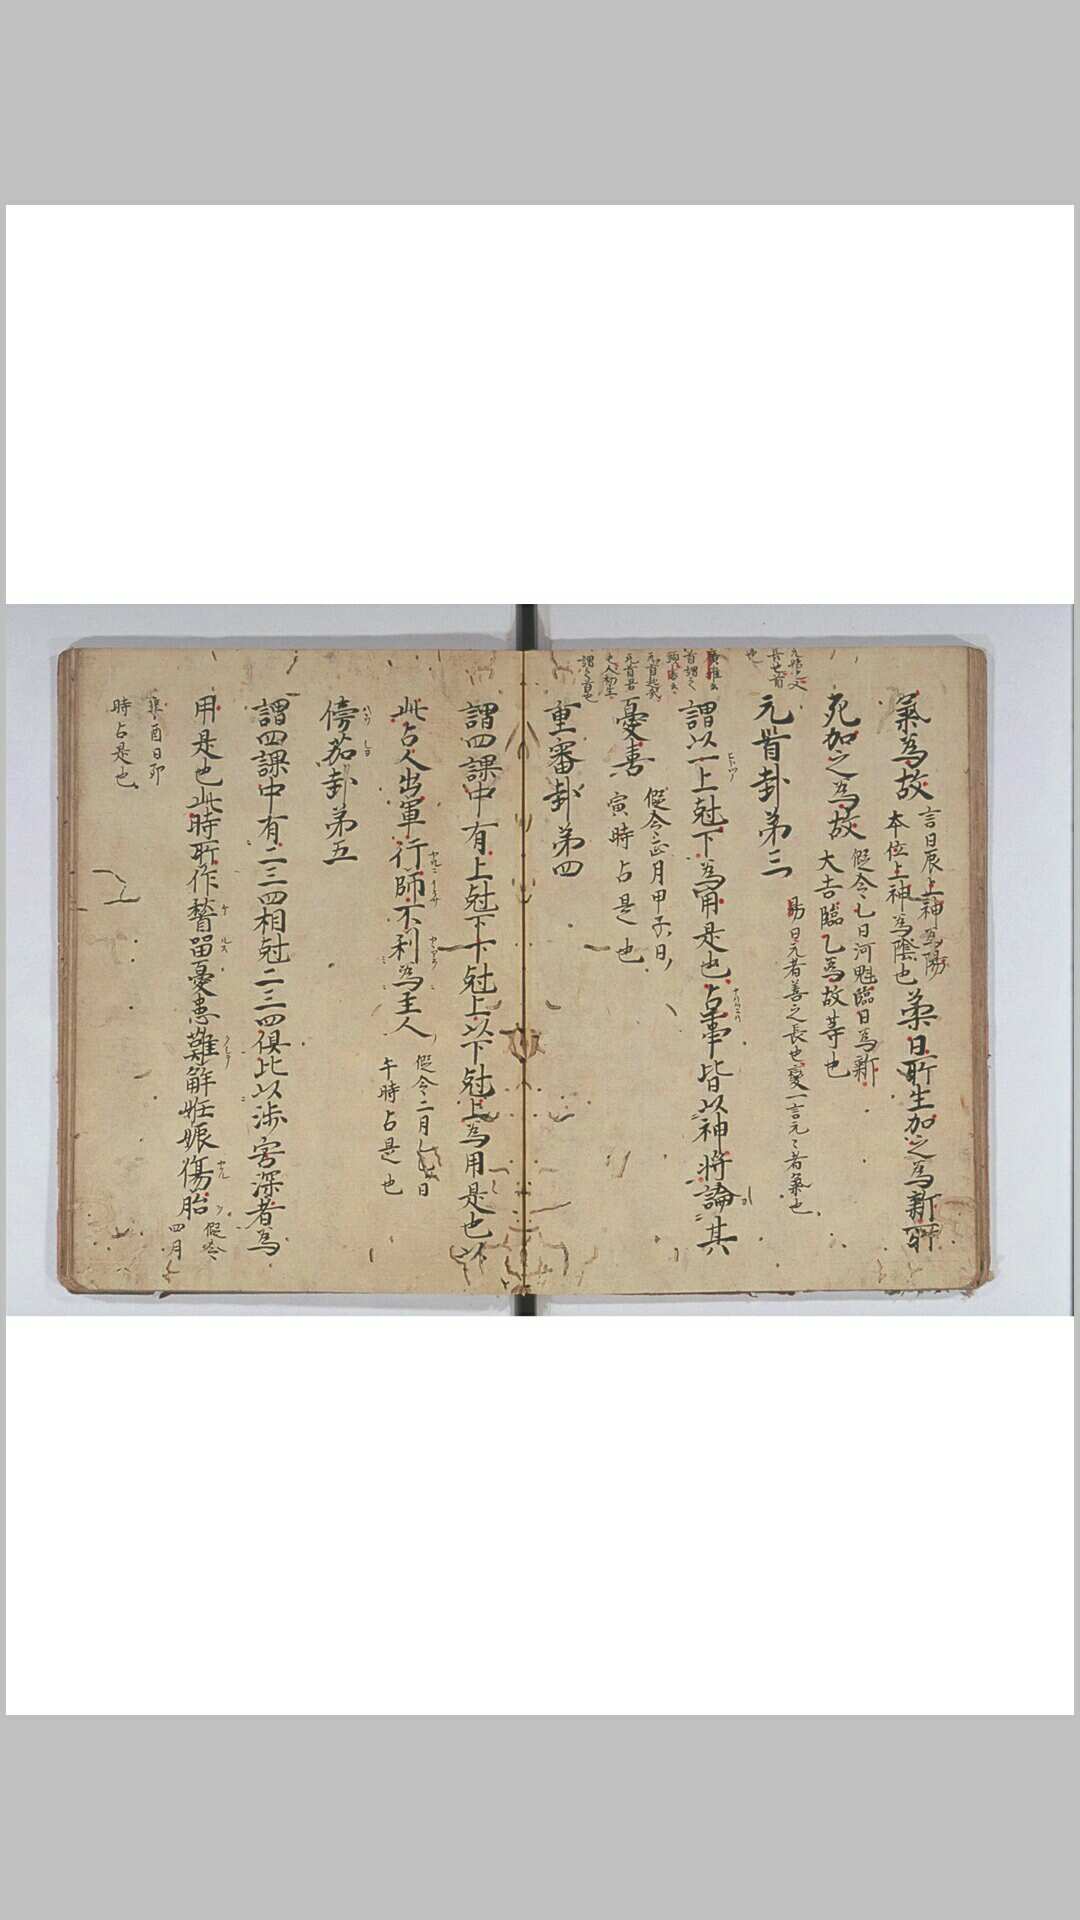 氣為故
言日辰上神為陽
本位上神為陰也
柔日所生加之為新所
死加之為故
假令乙日河魁臨日為新
大吉臨乙為故等也
元首卦第三
易曰元者善之長也變一言元〻者氣也
謂以一上尅下為用是也占事皆以神將論其
憂喜
假令正月甲子日
寅時占是也
重審卦第四
謂四課中有上尅下下尅上以下尅上為用是也以
此占人出軍行師不利為主人
假令二月乙日
午時占是也
傍茄卦第五
謂四課中有二三四相尅二三四俱比以涉害深者為
用是也此時所作稽留憂患難解妊娠傷胎
假令
四月
辛酉日卯
時占是也